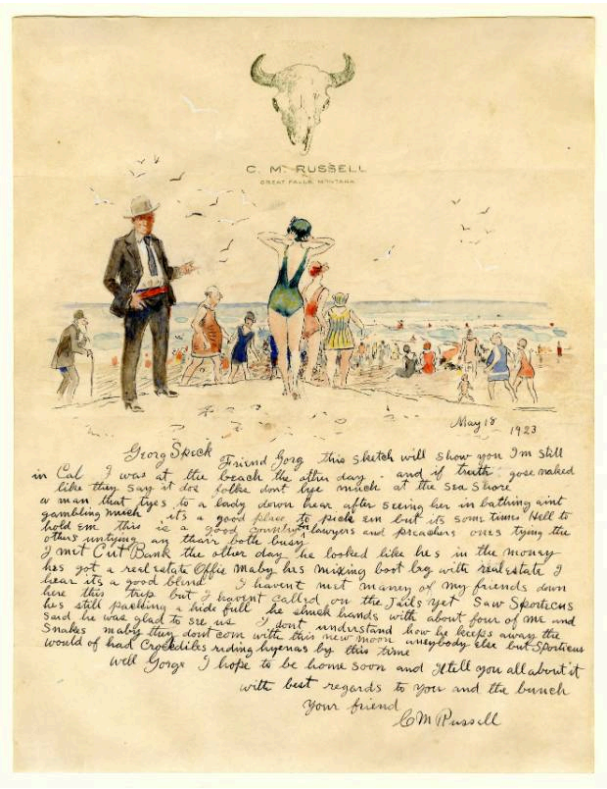 C. M. RUSSELL
GREAT FALLS MONTANA
May 18 1923
Georg Speck
Friend Gorg this sketch will show you Im still
in Cal I was at the beach the other day and if truth gose naked
like they say it dos folks dont lye much at the sea shore
a man that tyes to a lady down hear after seeing her in bathing aint
gambling much its a good place to pick em but its some times Hell to
hold em this is a good country for lawyers and preachers ones tying the
others untying an thair both busy
I met Cut Bank the other day he looked like hes in the money
hes got a real estate Offic maby hes mixing boot leg with real estate I
hear its a good blind I havent met maney of my friends down
here this trip but I havent called on the Jails yet Saw Sporticus
hes still packing a hide full he shuck hands with about four of me and
Said he was glad to see us I dont understand how he keeps away the
Snakes maby they dont com with this new moon aneybody else but Sporticus
would of had Crockdiles riding hyenas by this time
well Gorge I hope to be home soon and Ill tell you all about it
with best regards to you and the bunch
Your friend
CM Russell